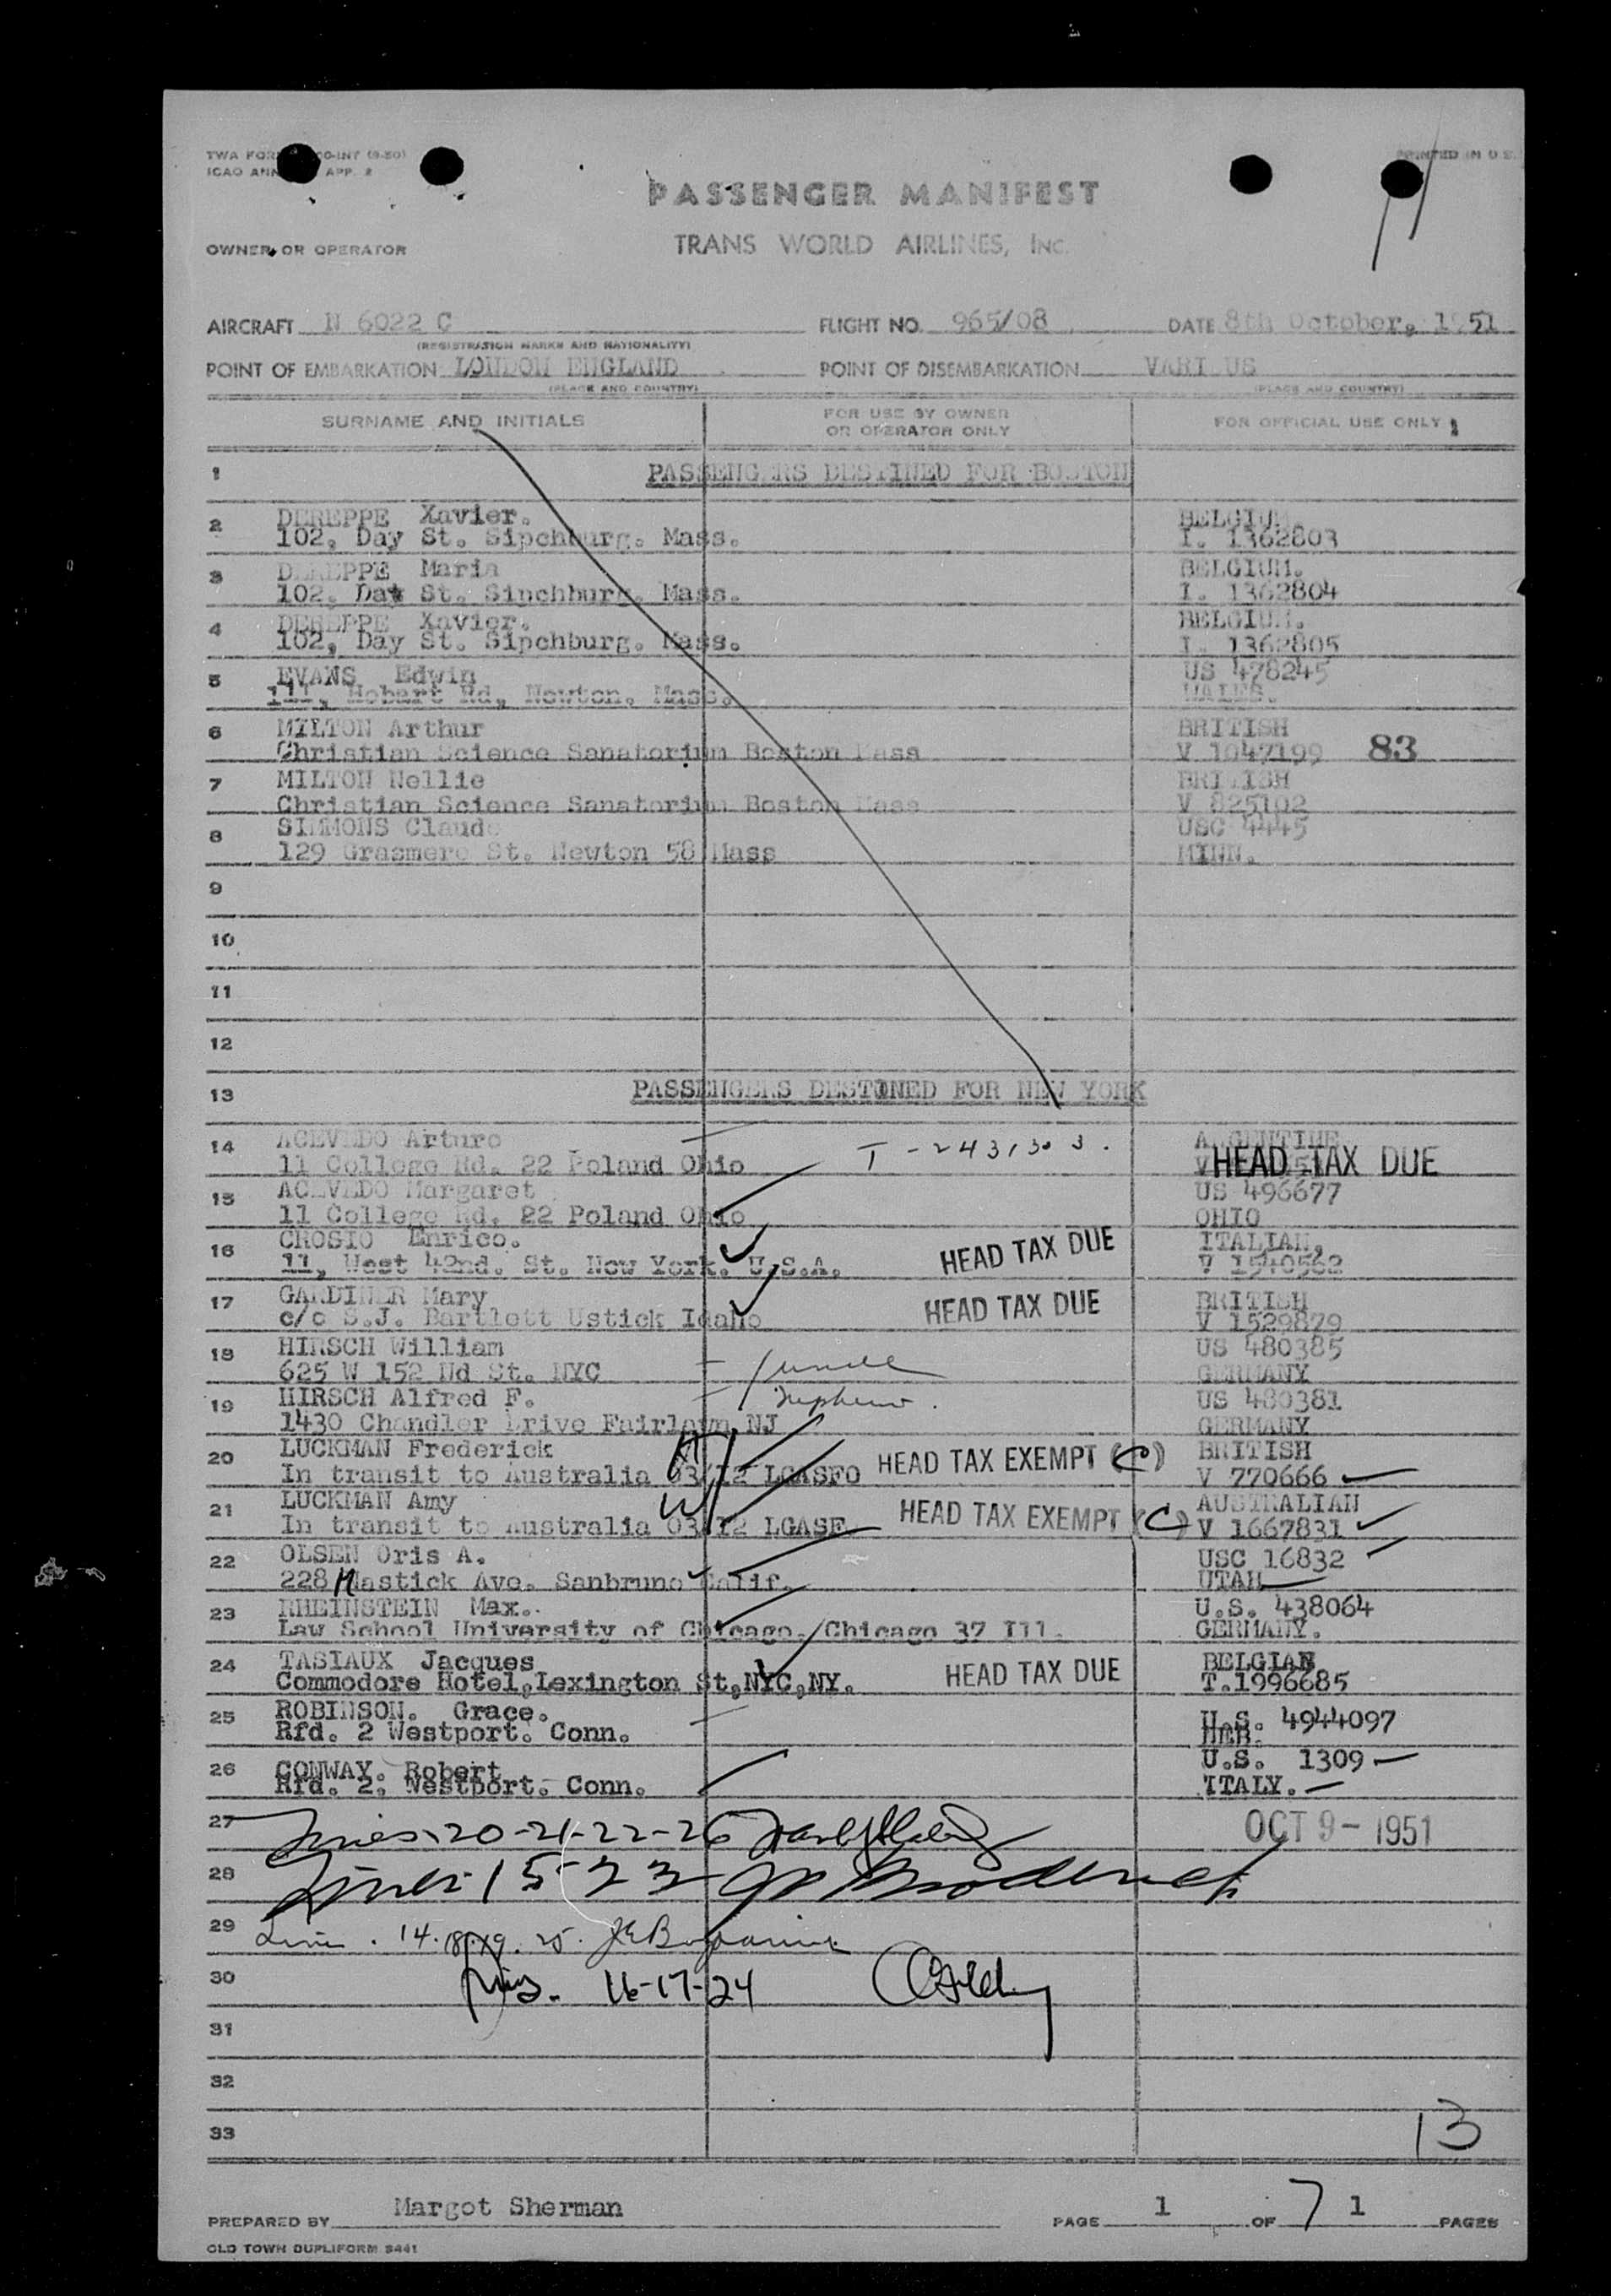 TWA FORM CO-INT (8-50)
ICAO ANN APP. 2
PRINTED IN U.S.
PASSENGER MANIFEST
OWNER OR OPERATOR
TRANS WORLD AIRLINES, INC.
AIRCRAFT N 6022 C FLIGHT NO. 965/08 DATE 8th October, 1951
(REGISTRATION MARKS AND NATIONALITY)
POINT OF EMBARKATION LONDON ENGLAND POINT OF DISEMBARKATION VARI US
(PLACE AND COUNTRY) (PLACE AND COUNTRY)
SURNAME AND INITIALS FOR USE BY OWNER OR OPERATOR ONLY FOR OFFICIAL USE ONLY
1 PASSENGERS DESTINED FOR BOSTON
2 DEREPPE Xavier. BELGIUM
102, Day St. Sipchburg. Mass. I. 1362803
3 DEREPPE Maria BELGIUM.
102, Dat St. Sipchburg. Mass. I. 1362804
4 DEREPPE Xavier. BELGIUM.
102, Day St. Sipchburg. Mass. I. 1362805
5 EVANS Edwin US 478245
111, Hobart Rd, Newton, Mass. WALES.
6 MILTON Arthur BRITISH
Christian Science Sanatorium Boston Mass V 1047199 83
7 MILTON Nellie BRITISH
Christian Science Sanatorium Boston Mass V 825102
8 SIMMONS Claude USC 4445
129 Grasmere St. Newton 58 Mass MINN.
9
10
11
12
13 PASSENGERS DESTINED FOR NEW YORK
14 ACEVEDO Arturo T-2431303. ARGENTINE
11 College Rd. 22 Poland Ohio HEAD TAX DUE
15 ACEVEDO Margaret US 496677
11 College Rd. 22 Poland Ohio OHIO
16 CROSIO Enrico. HEAD TAX DUE ITALIAN,
11, West 42nd. St. New York. U.S.A. V 1540562
17 GARDINER Mary HEAD TAX DUE BRITISH
c/o S.J. Bartlett Ustick Idaho V 1529879
18 HIRSCH William US 480385
625 W 152 Nd St. NYC uncle GERMANY
19 HIRSCH Alfred F. nephew. US 480381
1430 Chandler Drive Fairlawn NJ GERMANY
20 LUCKMAN Frederick HEAD TAX EXEMPT (C) BRITISH
In transit to Australia 03/12 LGASFO V 770666
21 LUCKMAN Amy HEAD TAX EXEMPT (C) AUSTRALIAN
In transit to Australia 03/12 LGASF V 1667831
22 OLSEN Oris A. USC 16832
228 Mastick Ave. Sanbruno Calif. UTAH
23 RHEINSTEIN Max. U.S. 438064
Law School University of Chicago. Chicago 37 Ill. GERMANY.
24 TASIAUX Jacques HEAD TAX DUE BELGIAN
Commodore Hotel, Lexington St, NYC, NY. T.1996685
25 ROBINSON. Grace. U.S. 4944097
Rfd. 2 Westport. Conn. NEB.
26 CONWAY. Robert U.S. 1309
Rfd. 2. Westport. Conn. ITALY.
27 Lines 20-21-22-26 OCT 9 - 1951
28 Lines 15-23
29 Line . 14. 18. 19. 25.
30 Lines. 16-17-24
31
32
33
13
PREPARED BY Margot Sherman PAGE 1 OF 7 1 PAGES
OLD TOWN DUPLIFORM 8441